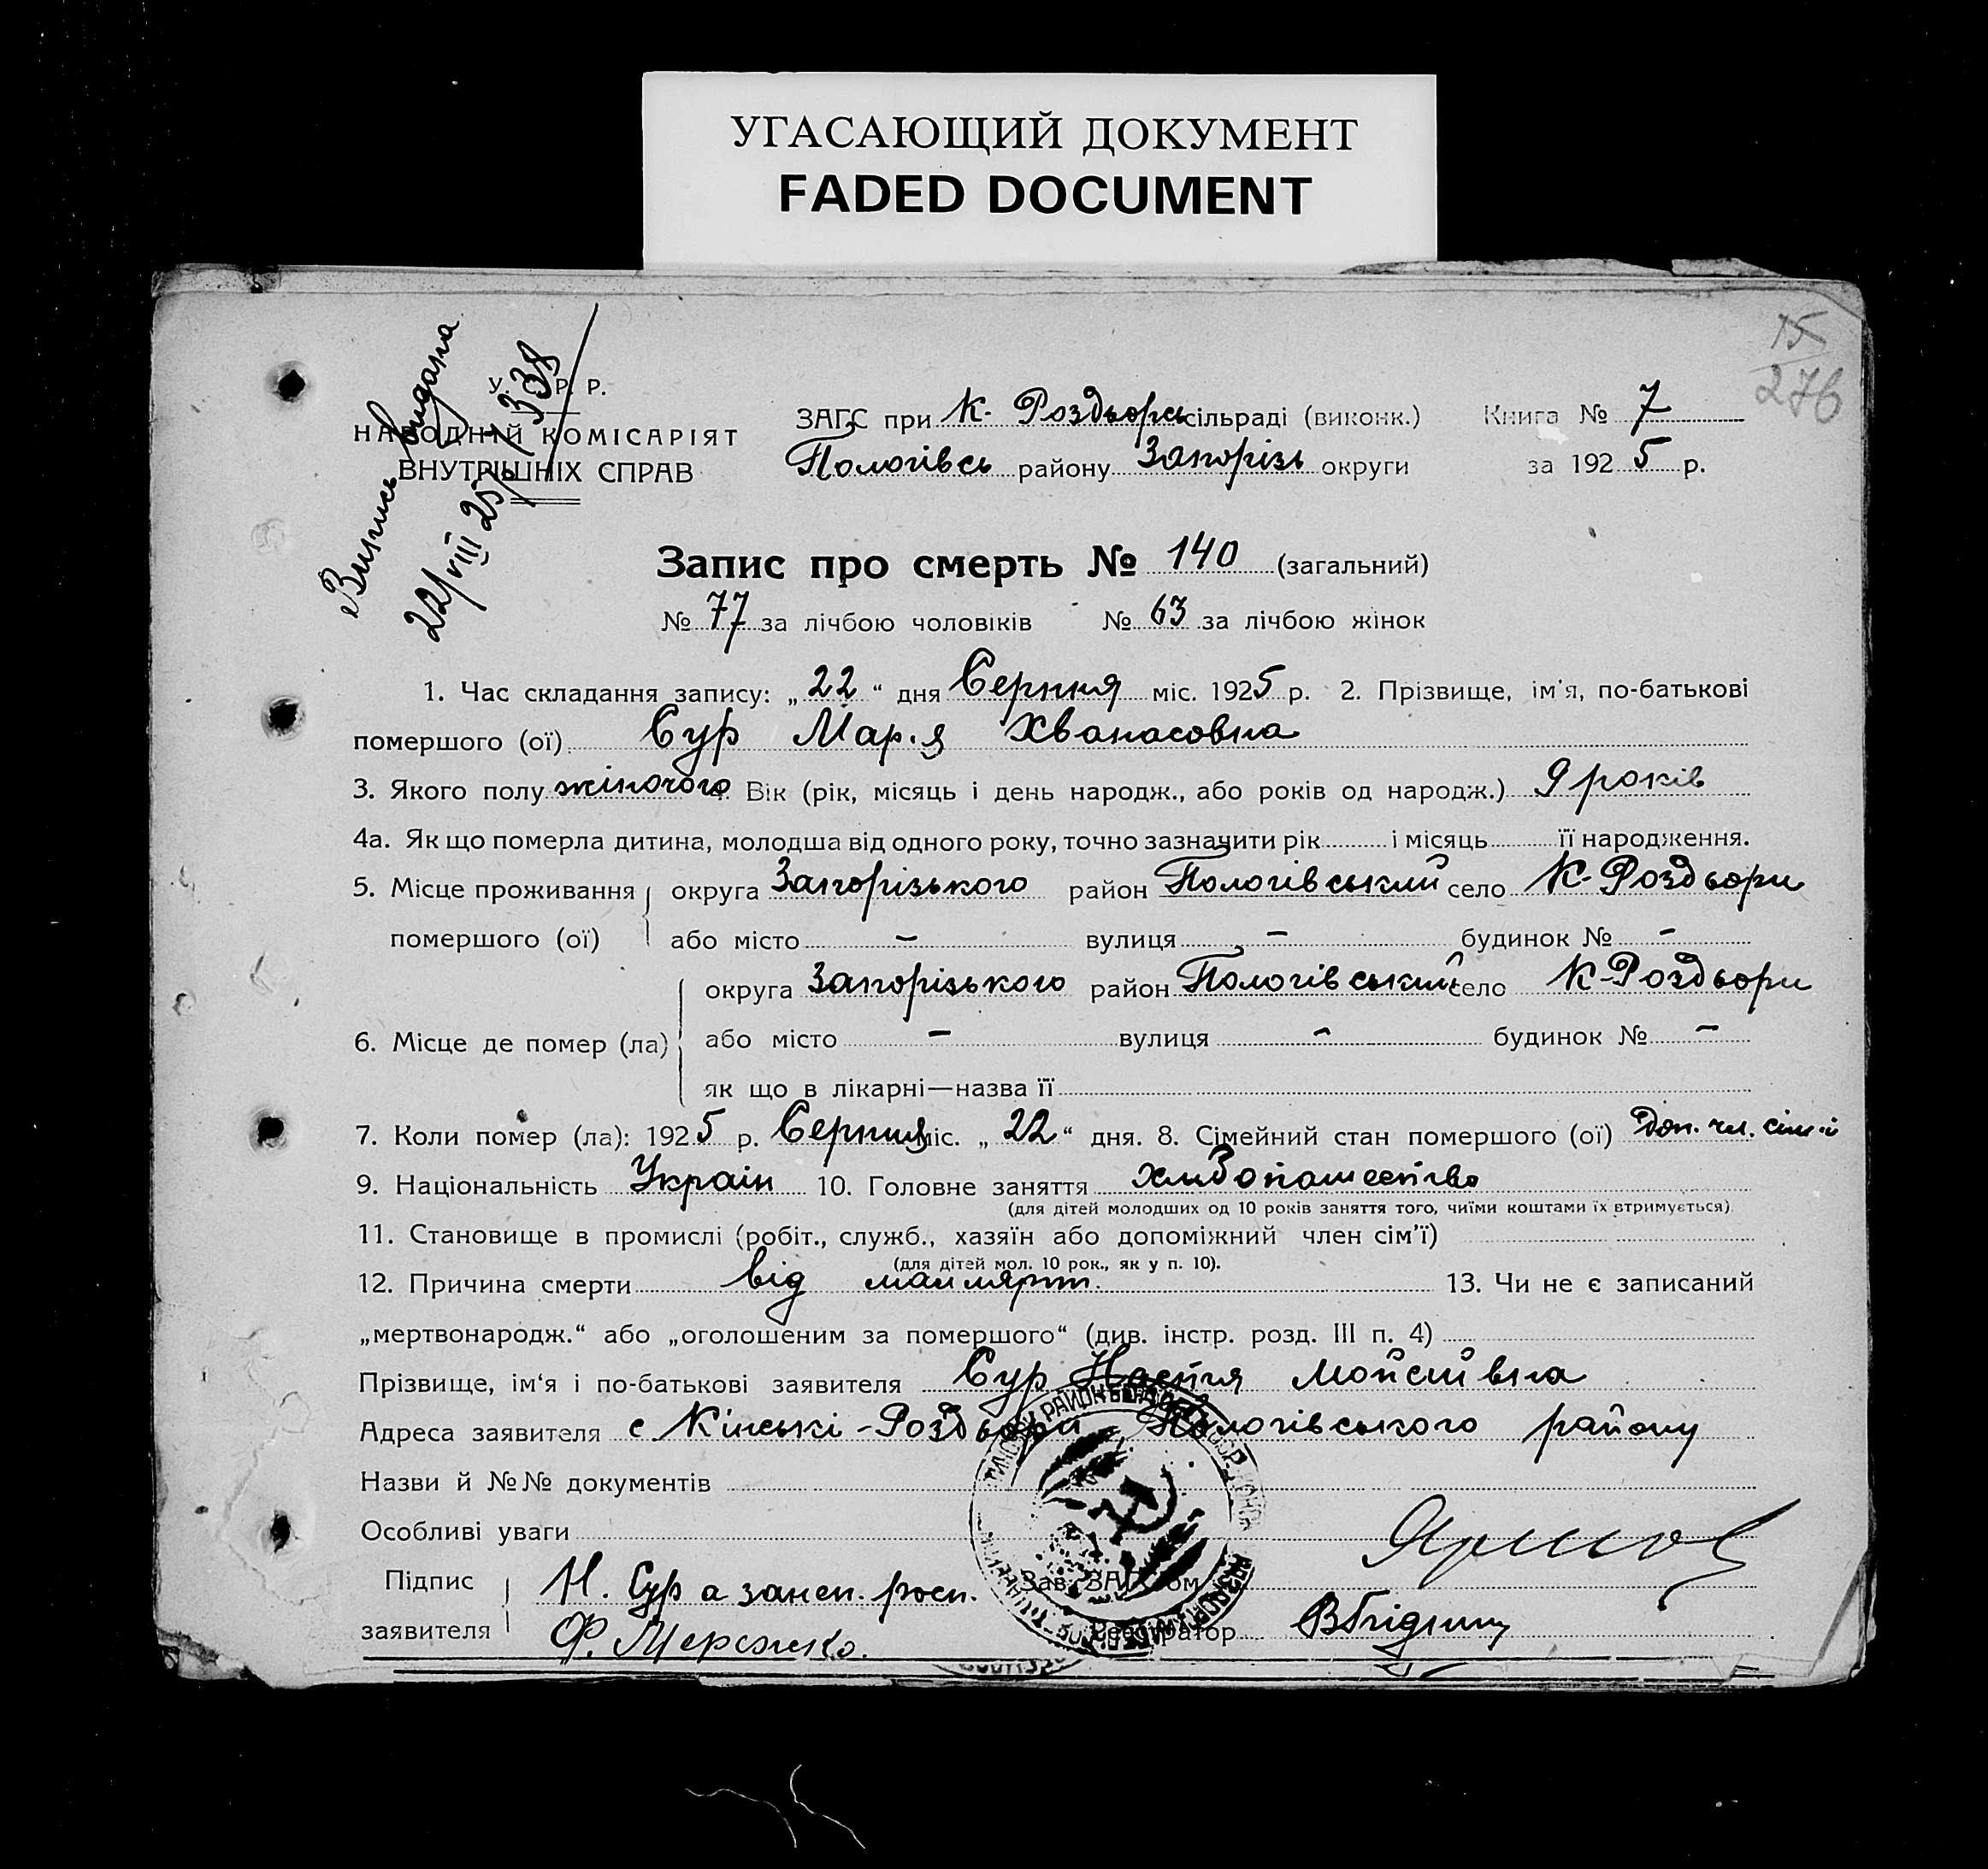 УГАСАЮЩИЙ ДОКУМЕНТ
FADED DOCUMENT
15
276
Випись видана
22/VIII 25 р 338
У. Р. Р.
НАРОДНІЙ КОМІСАРІЯТ
ВНУТРІШНІХ СПРАВ
ЗАГС при К-Роздьорсь сільраді (виконк.) Книга № 7
Пологівсь району Запорізь округи за 1925 р.
Запис про смерть № 140 (загальний)
№ 77 за лічбою чоловіків № 63 за лічбою жінок
1. Час складання запису: „22“ дня Серпня міс. 1925 р. 2. Прізвище, ім'я, по-батькові
помершого (ої) Сур Мар.я Хванасовна
3. Якого полу жіночого 4. Вік (рік, місяць і день народж., або років од народж.) 9 років
4а. Як що померла дитина, молодша від одного року, точно зазначити рік і місяць її народження.
5. Місце проживання округа Запорізького район Пологівський село К-Роздьори
помершого (ої) або місто - вулиця - будинок № -
округа Запорізького район Пологівський село К-Роздьори
6. Місце де помер (ла) або місто - вулиця - будинок № -
як що в лікарні—назва її
7. Коли помер (ла): 1925 р. Серпня міс. „22“ дня. 8. Сімейний стан помершого (ої) доп. чл. сім-ї
9. Національність Україн 10. Головне заняття
(для дітей молодших од 10 років заняття того, чиїми коштами їх втримується)
11. Становище в промислі (робіт., служб., хазяїн або допоміжний член сім'ї)
(для дітей мол. 10 рок., як у п. 10).
12. Причина смерти від 13. Чи не є записаний
„мертвонародж.“ або „оголошеним за помершого“ (див. інстр. розд. III п. 4)
Прізвище, ім'я і по-батькові заявителя Сур Настя Мойсиївна
Адреса заявителя с. Кінські-Роздьори Пологівського району
Назви й №№ документів
Особливі уваги
Підпис Н. Сур а за росп. Зав. ЗАГСом
заявителя Ф. Реєстратор